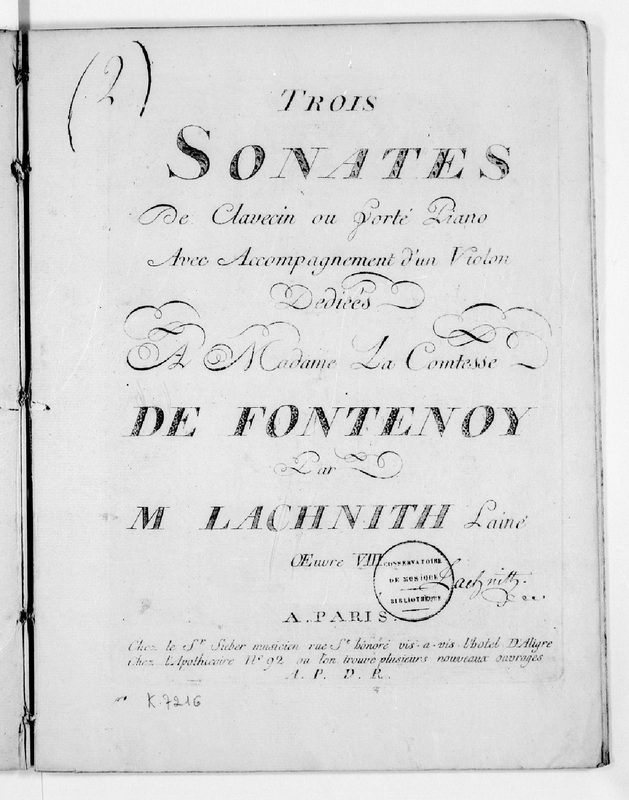 (2)
TROIS
SONATES
De Clavecin ou forté Piano
Avec Accompagnement d'un Violon
Dediées
A Madame La Comtesse
DE FONTENOY
Par
M LACHNITH Lainé
Œuvre VIII
CONSERVATOIRE
DE MUSIQUE
BIBLIOTHÈQUE
Lachnith.
A PARIS.
Chez le Sr. Sieber musicien rue St. honoré vis-a-vis l'hotel D'Aligre
Chez L'Apothecaire No. 92 ou l'on trouve plusieurs nouveaux ouvrages
A. P. D. R.
K.7216